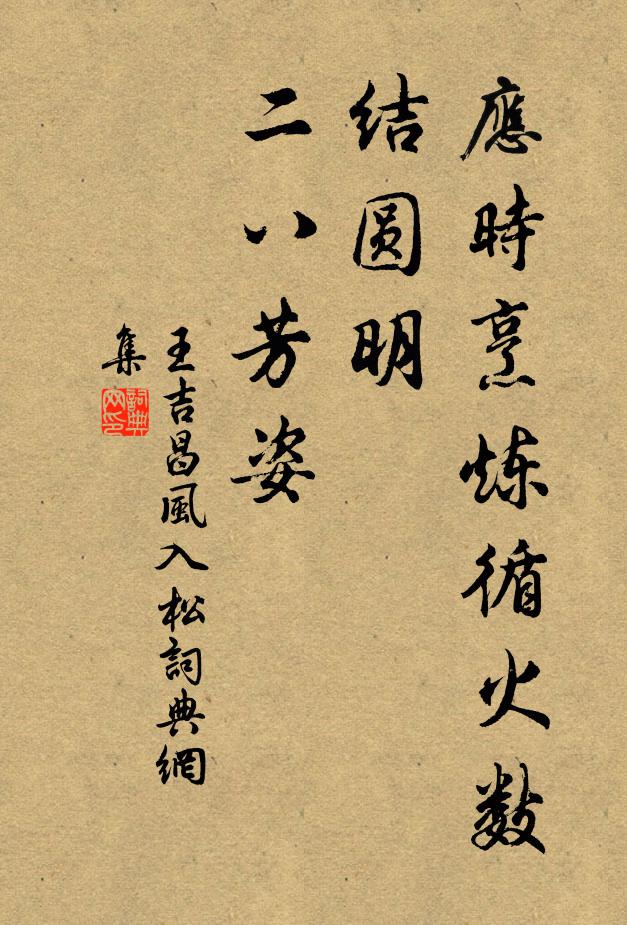 應時烹炼循火数
结圆明
二八芳姿
王吉昌風入松詞典網
集
詞典
网印